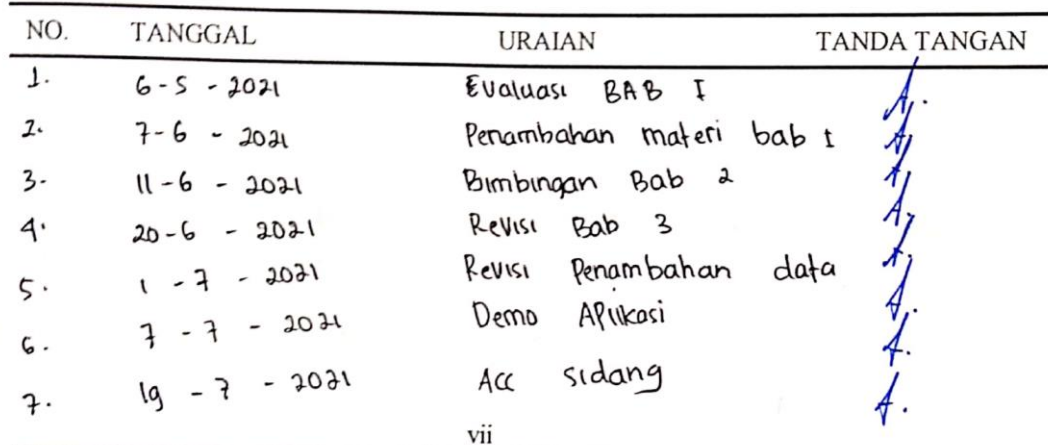 NO. TANGGAL URAIAN TANDA TANGAN
1. 6-5-2021 Evaluasi BAB I
2. 7-6-2021 Penambahan materi bab I
3. 11-6-2021 Bimbingan Bab 2
4. 20-6-2021 Revisi Bab 3
5. 1-7-2021 Revisi Penambahan data
6. 7-7-2021 Demo APlikasi
7. 19-7-2021 Acc sidang
vii